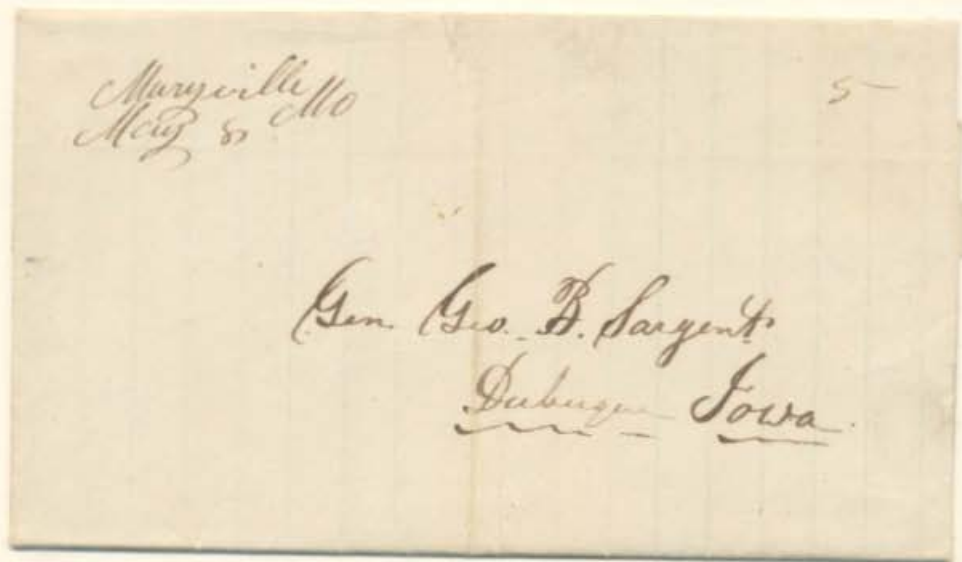 Maryville Mo
May 8
5
Gen. Geo. B. Sargent
Dubuque Iowa.